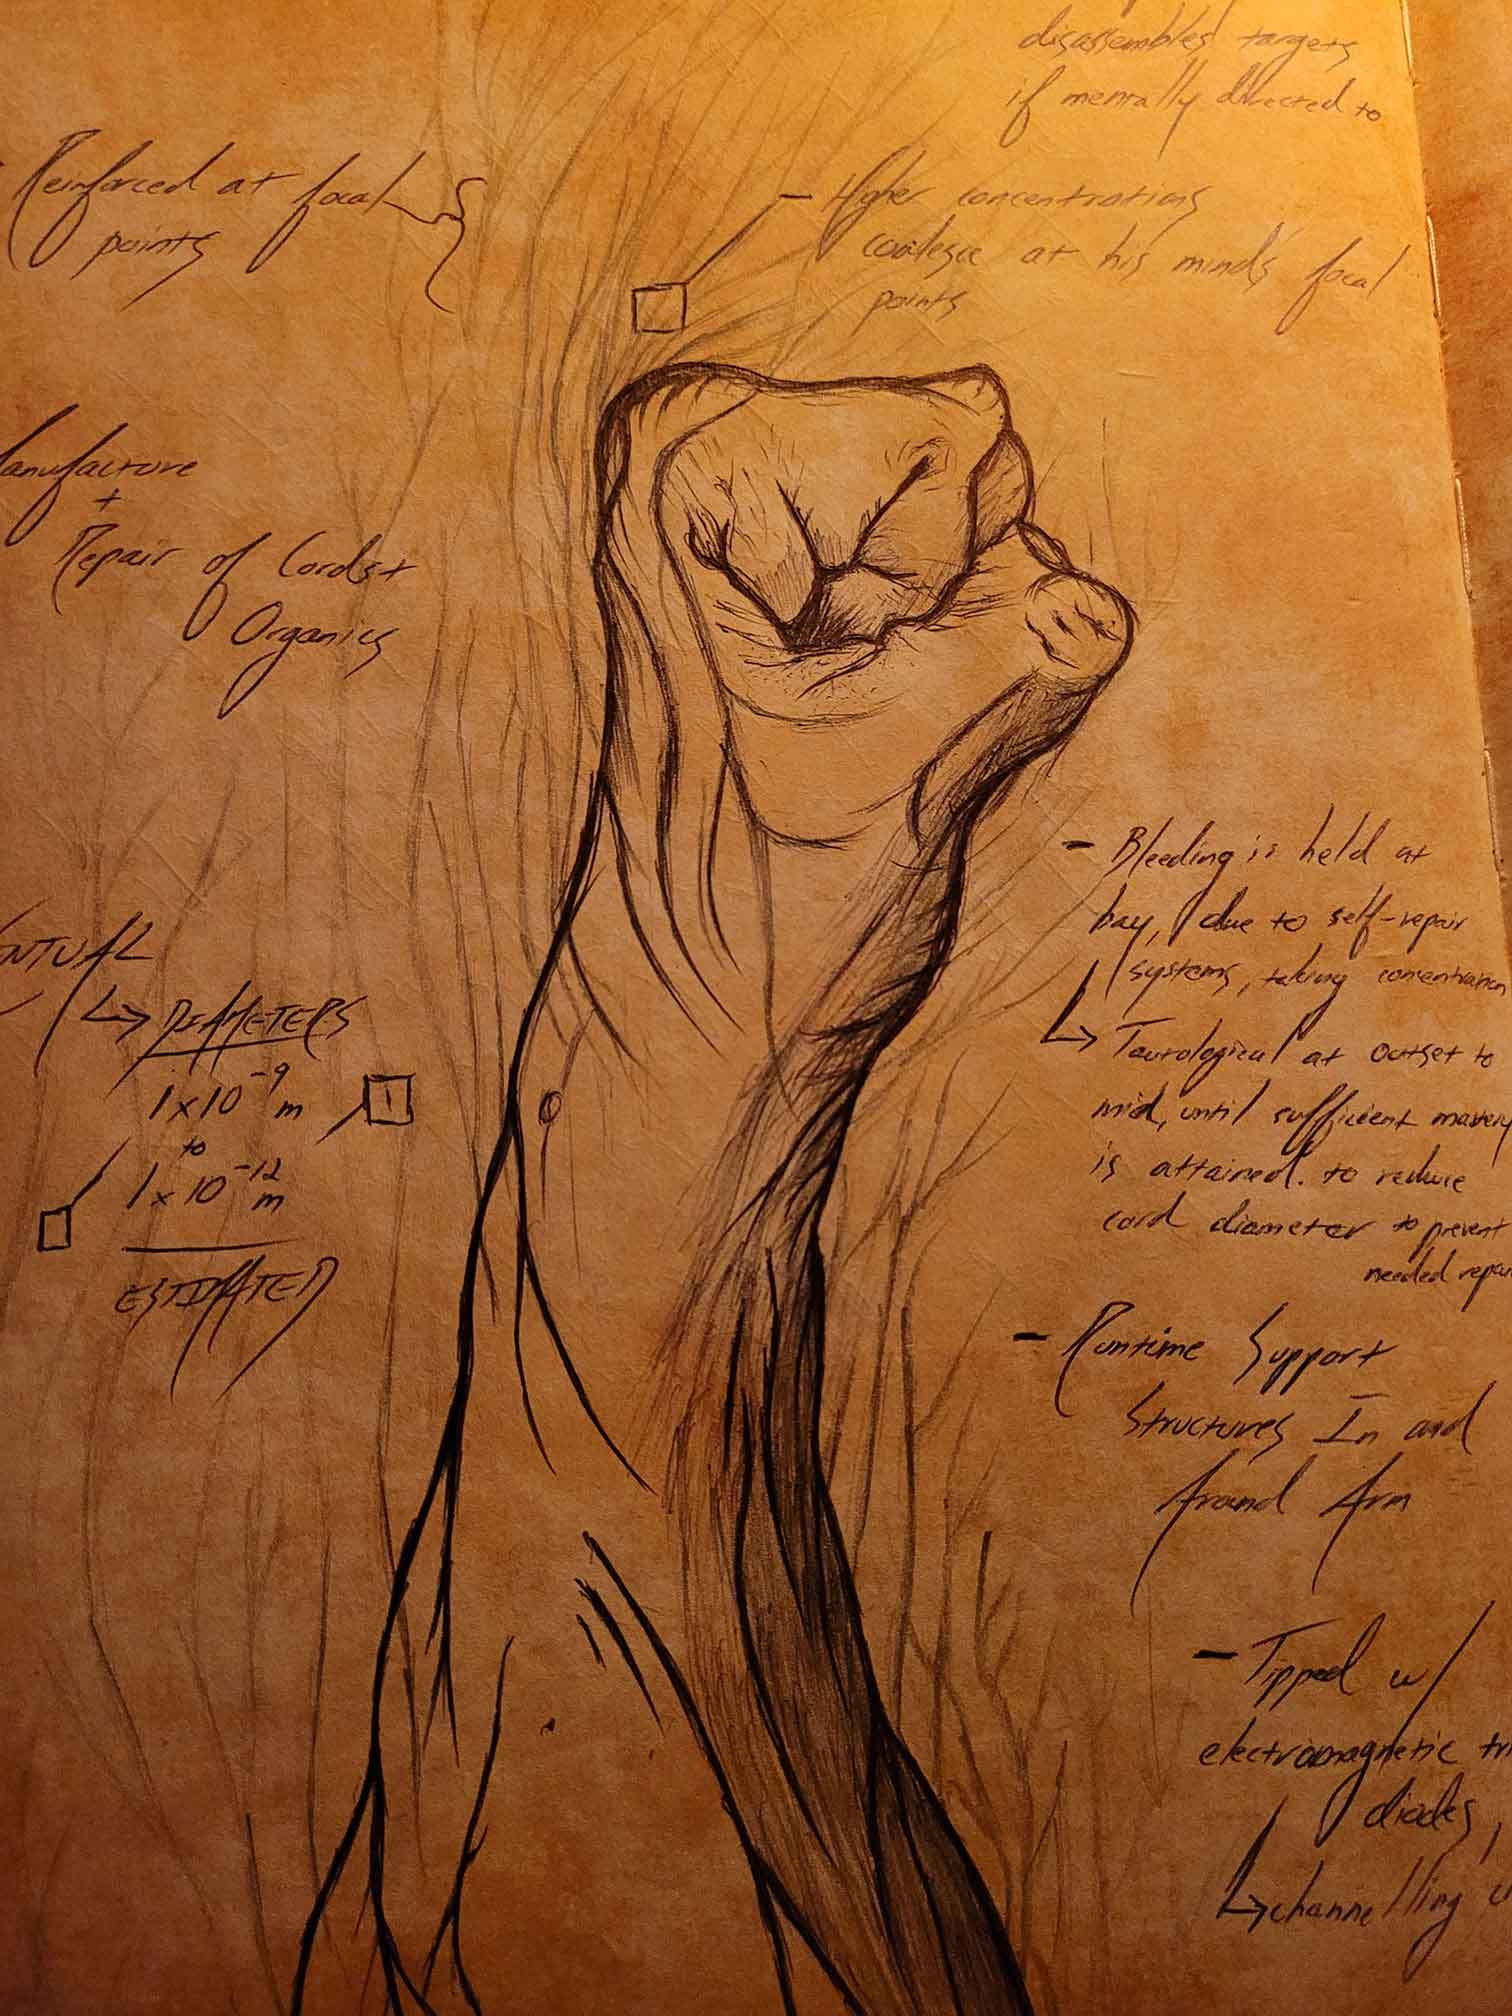 disassembles targets
if mentally directed to
Reinforced at focal
points
- Higher concentrations
coalesce at his mind's focal
points
Manufacture
+
Repair of Cords +
Organics
- Bleeding is held at
bay, due to self-repair
systems, taking concentration
↳ Tautological at outset to
mid, until sufficient mastery
is attained. to reduce
cord diameter to prevent
needed repair
↳ DIAMETERS
1x10⁻⁹ m
to
1x10⁻¹² m
ESTIMATED
- Runtime Support
Structures In and
Around Arm
- Tipped w/
electromagnetic
diodes,
↳ channelling